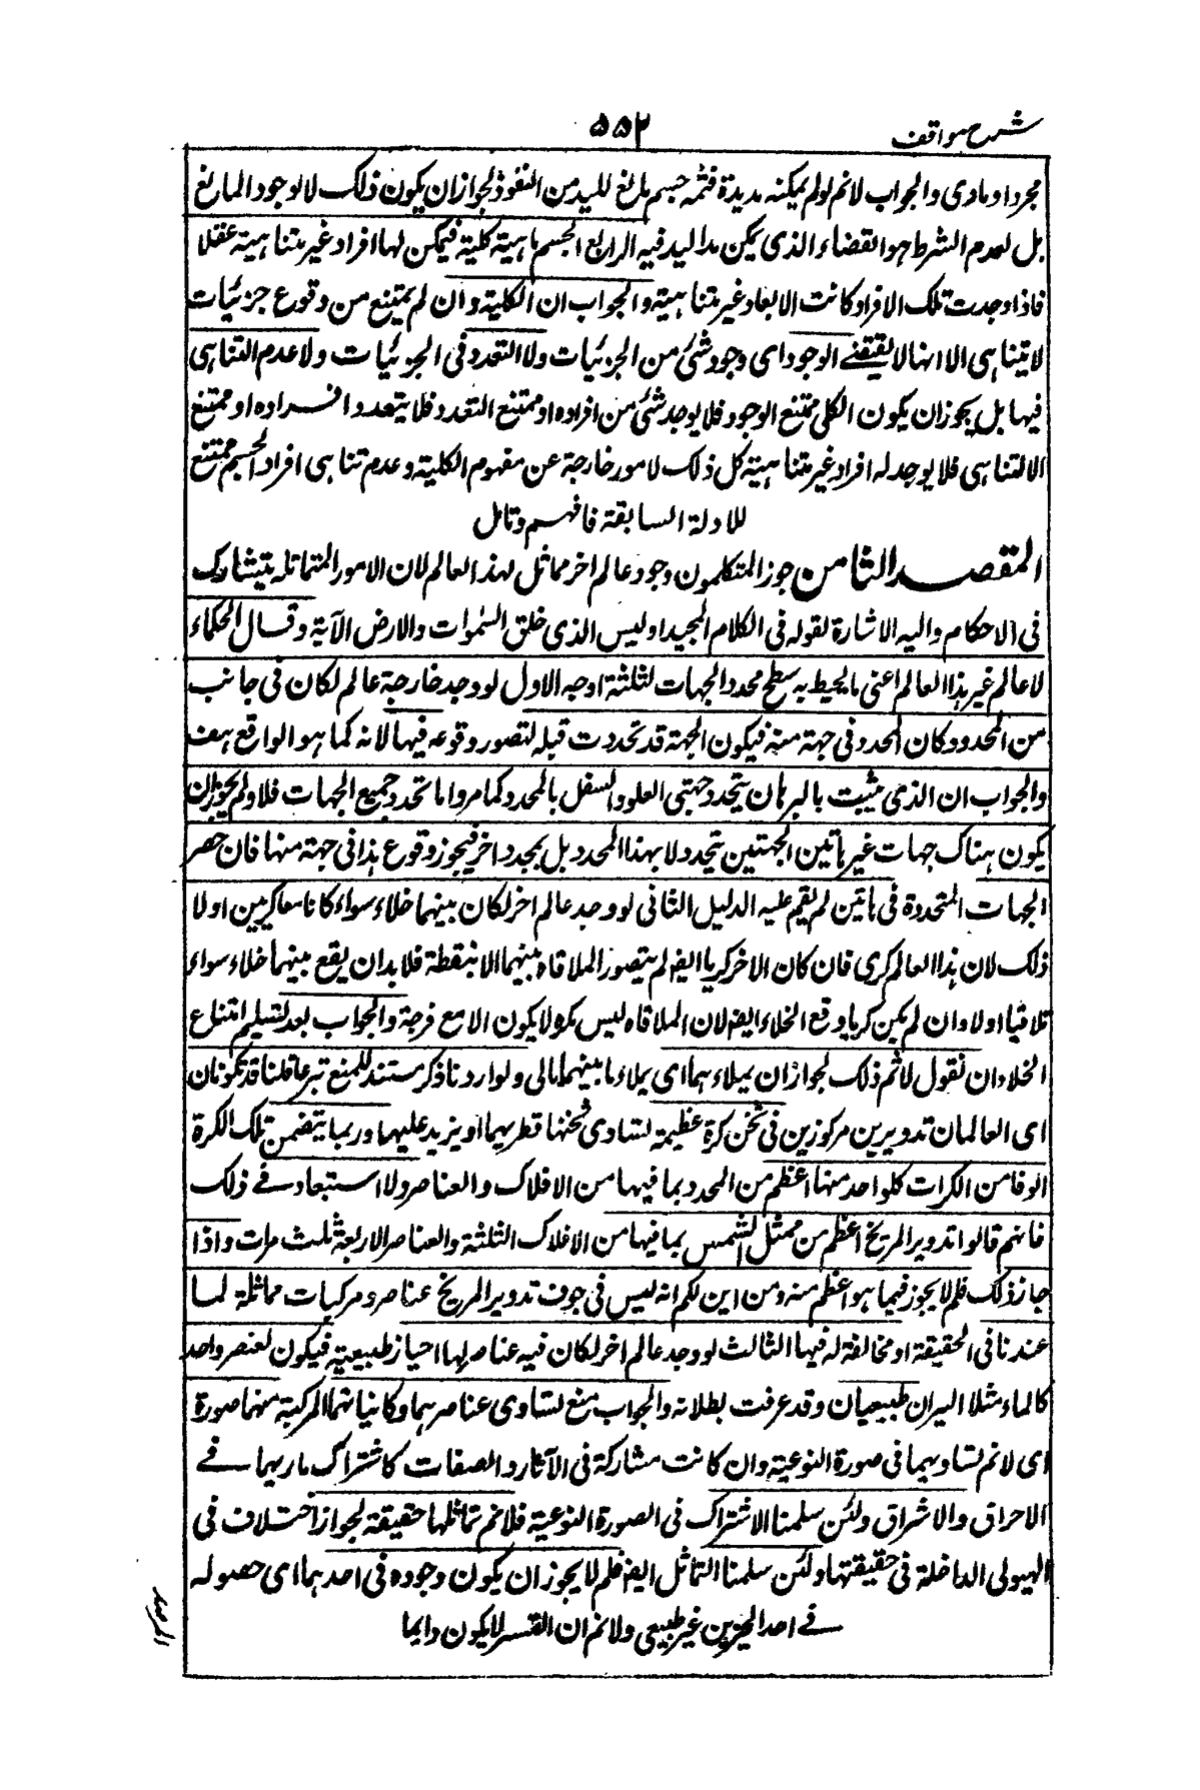 شرح مواقف
۵۵۲
مجرد او مادی والجواب لانم لو لم یمکنه مد یده فثمه جسم مانع للید من النفوذ لجواز ان یکون ذلک لا لوجود المانع
بل لعدم الشرط هو الفضاء الذی یمکن مد الید فیه الرابع الجسم ماهیة کلیة فیمکن لها افراد غیر متناهیة عقلا
فاذا وجدت تلک الافراد کانت الابعاد غیر متناهیة والجواب ان الکلیة وان لم یمتنع من وقوع جزئیات
لا یتناهی الا انها لا یقتضی الوجود ای وجود شئ من الجزئیات ولا التعدد فی الجزئیات ولا عدم التناهی
فیها بل یجوز ان یکون الکلی ممتنع الوجود فلا یوجد شئ من افراده او ممتنع التعدد فلا یتعدد افراده او ممتنع
اللاتناهی فلا یوجد له افراد غیر متناهیة کل ذلک لامور خارجة عن مفهوم الکلیة وعدم تناهی افراد الجسم ممتنع
للادلة السابقة فافهم وتامل
المقصد الثامن جوز المتکلمون وجود عالم اخر مماثل لهذا العالم لان الامور المتماثلة یتشارک
فی الاحکام والیه الاشارة لقوله فی الکلام المجید اولیس الذی خلق السموات والارض الآیة وقال الحکماء
لا عالم غیر هذا العالم اعنی ما یحیط به سطح محدد الجهات لثلثة اوجه الاول لو وجد خارجة عالم لکان فی جانب
من المحدد وکان المحدد فی جهة منه فیکون الجهة قد تحددت قبله لتصور وقوعه فیها لا به کما هو الواقع هف
والجواب ان الذی یثبت بالبرهان یتحدد جهتی العلو والسفل بالمحدد کما مر واما تحدد جمیع الجهات فلا ولم لا یجوز ان
یکون هناک جهات غیر هاتین الجهتین یتحدد لا بهذا المحدد بل بمحدد اخر فیجوز وقوع هذا فی جهة منها فان حصر
الجهات المتحددة فی هاتین لم یقم علیه الدلیل الثانی لو وجد عالم اخر لکان بینهما خلاء سواء کانا معا کریین اولا
ذلک لان هذا العالم کری فان کان الاخر کریا ایضا لم یتصور الملاقاة بینهما الا بنقطة فلا بد ان یقع بینهما خلاء سواء
تلاقیا اولا وان لم یکن کریا وقع الخلاء ایضا لان الملاقاه لیس بکره لا یکون الا مع فرجة والجواب بعد تسلیم امتناع
الخلاء ان نقول لانم ذلک لجواز ان یملاءهما ای یملاء ما بینهما مالی ولو اردنا ذکر مستند للمنع تبرعا قلنا قد یکونان
ای العالمان تدویرین مرکوزین فی ثخن کرة عظیمة لتساوی ثخنها قطریهما او یزید علیهما وربما یتضمن تلک الکرة
الوفا من الکرات کلواحد منها اعظم من المحدد بما فیها من الافلاک والعناصر ولا استبعاد فی ذلک
فانهم قالوا تدویر المریخ اعظم من ممثل الشمس بما فیها من الافلاک الثلثة والعناصر الاربعة ثلث مرات واذا
جاز ذلک فلم لا یجوز فیما هو اعظم منه ومن این لکم انه لیس فی جوف تدویر المریخ عناصر ومرکبات مماثلة لما
عندنا فی الحقیقة او مخالفة له فیها الثالث لو وجد عالم اخر لکان فیه عناصر لها احیاز طبیعیة فیکون لعنصر واحد
کالماء مثلا حیزان طبیعیان وقد عرفت بطلانه والجواب منع تساوی عناصرهما وکائناتهما المرکبة منهما صورة
ای لانم تساویهما فی صورة النوعیة وان کانت مشارکة فی الآثار والصفات کاشتراک ناریهما فی
الاحراق والاشراق ولئن سلمنا الاشتراک فی الصورة النوعیة فلا نم تماثلها حقیقة لجواز اختلاف فی
الهیولی الداخلة فی حقیقتها ولئن سلمنا التماثل ایضا فلم لا یجوز ان یکون وجوده فی احدهما ای حصوله
فی احد الحیزین غیر طبیعی ولا نم ان القسر لا یکون دایما
المرصد